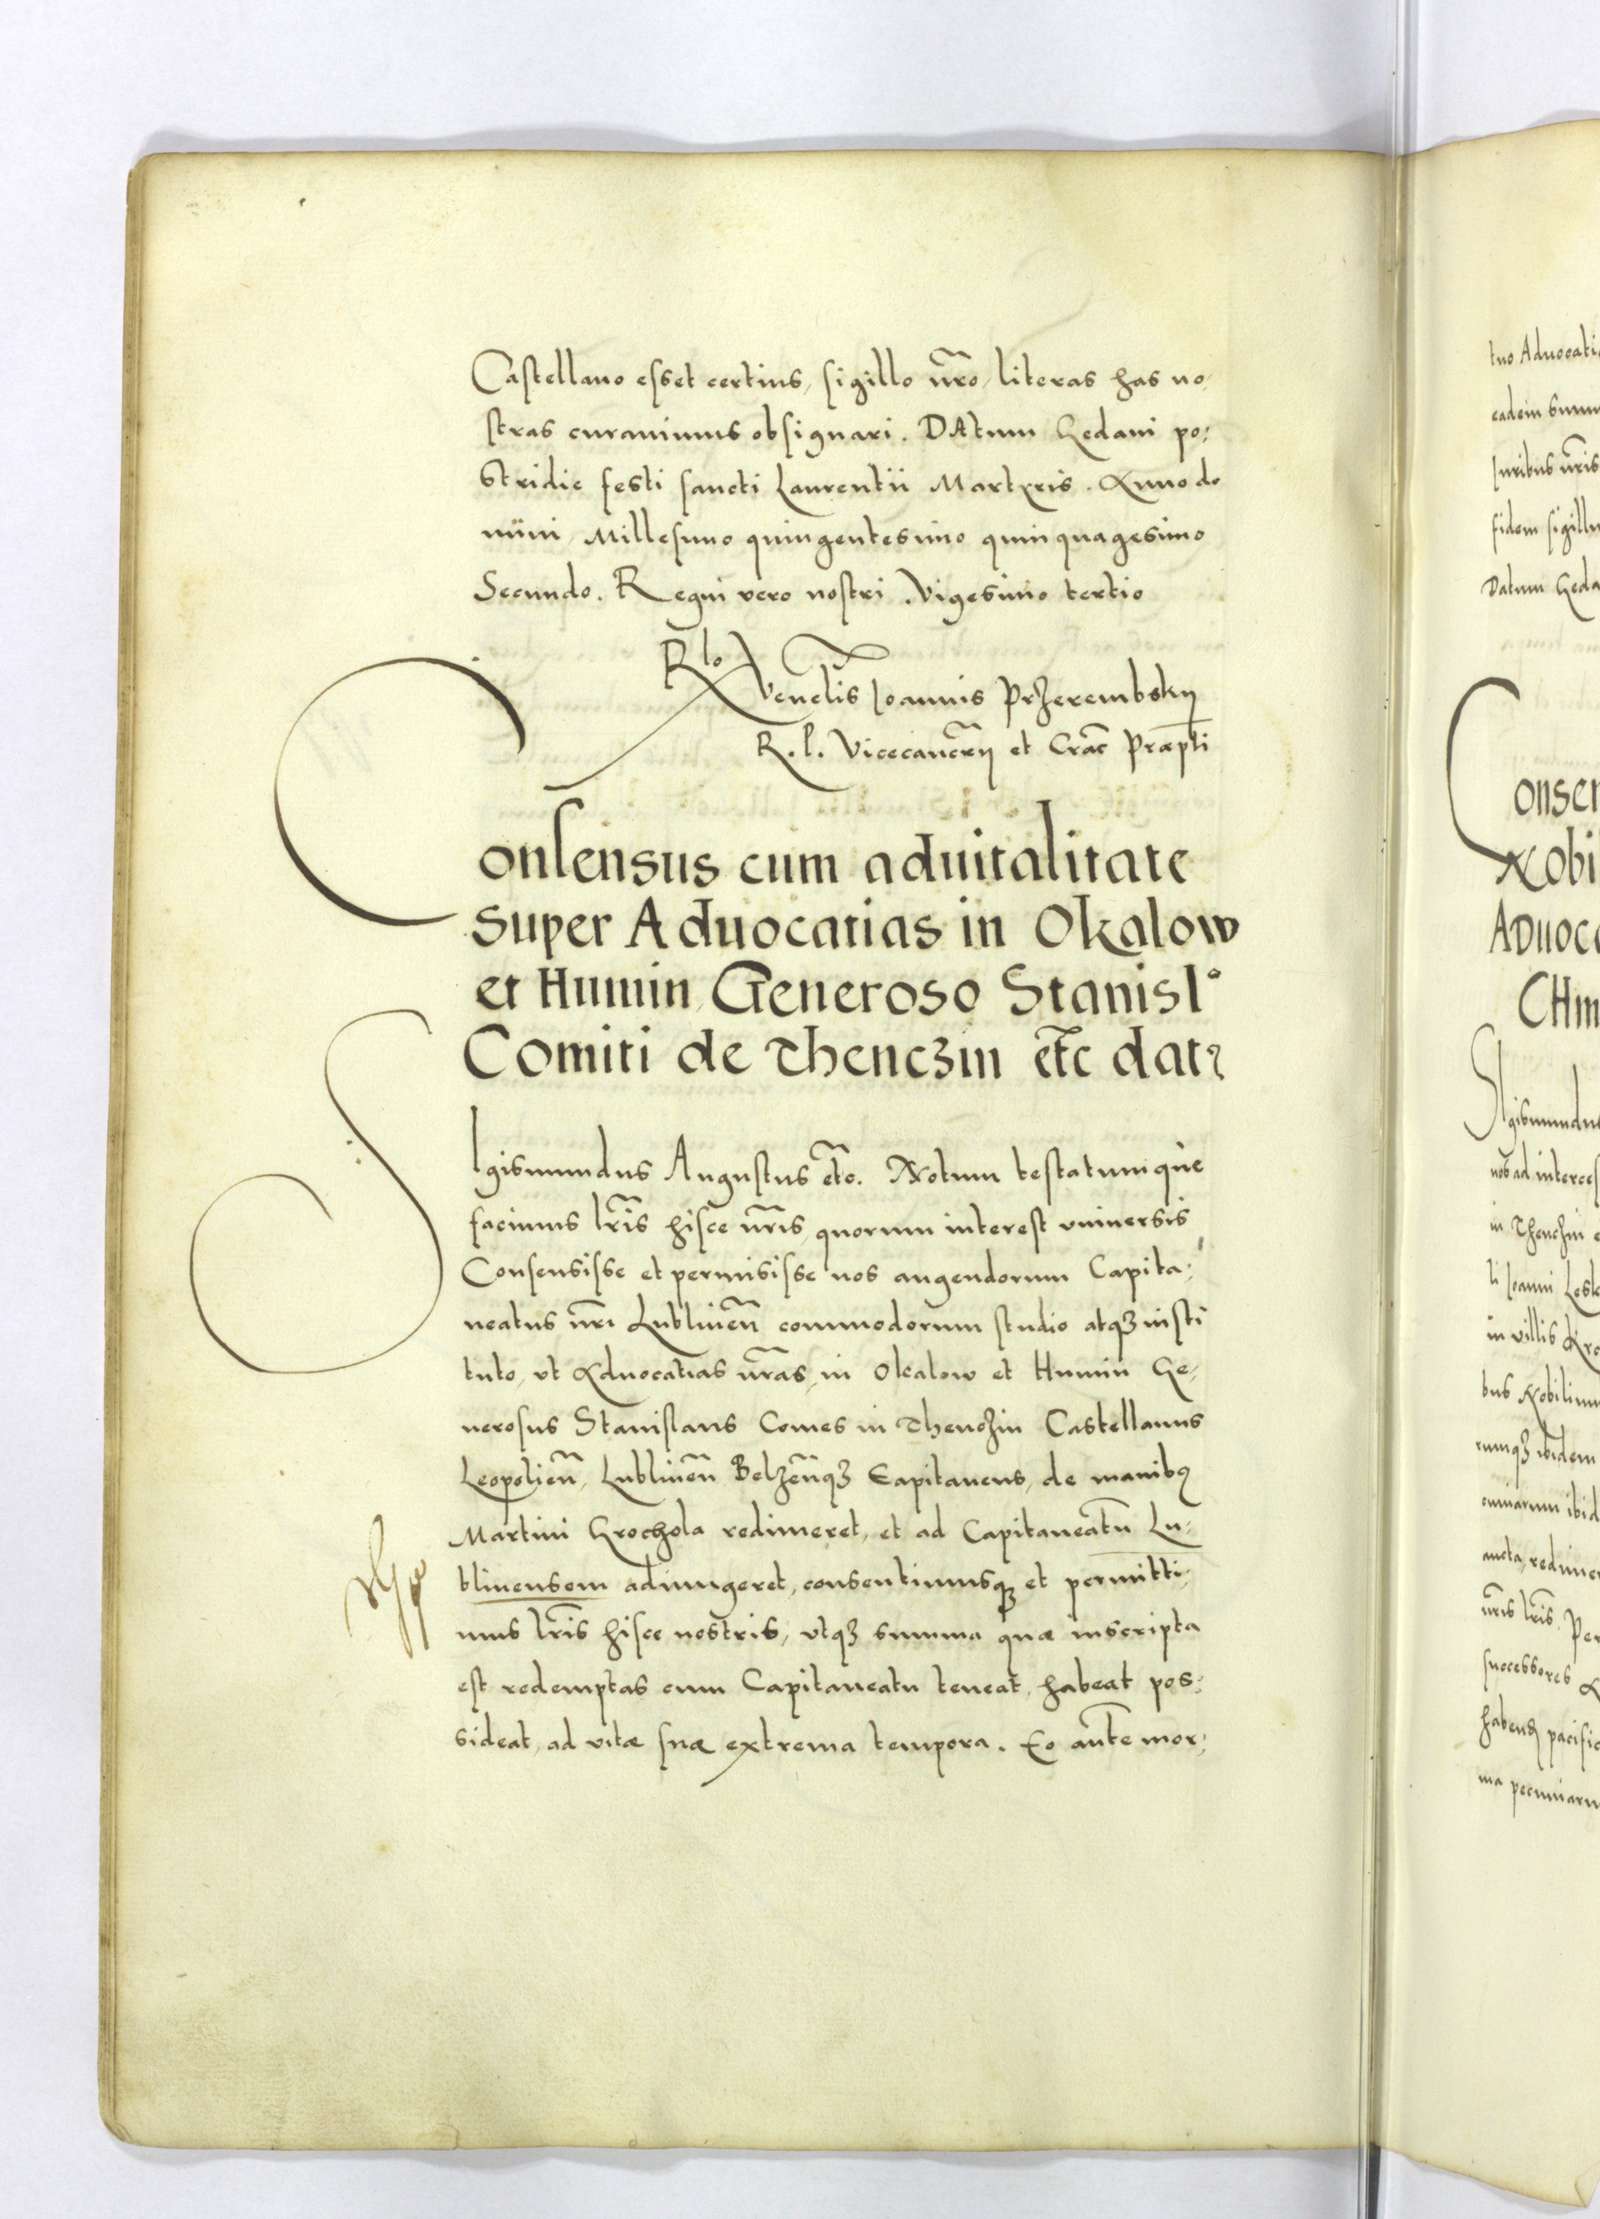 Castellano esset certius, sigillo nr̃o, literas has no,
stras curavimus obsignari. DAtum Gedani po,
Stridie festi sancti Laurentii Martyris. Anno do
mini, Millesimo quingentesimo quinquagesimo
Secundo. Regni vero nostri Vigesimo tertio
Rlo Venel̃is Joannis Przerembsky
R. P. Vicecancr̃ij et Crac̃ Præpti
Consensus cum aduitalitate
Super Aduocatias in Okalow
et Humin Generoso Stanisl°
Comiti de Thenczin etc̃ dat
SIgismundus Augustus etc̃. Notum testatumque
facimus lr̃is hisce nr̃is, quorum interest vniuersis
Consensisse et permisisse nos augendorum Capita,
neatus nr̃i Lublineñ commodorum studio atqz insti
tuto, vt Aduocatias nr̃as, in Okalow et Humin Ge,
nerosus Stanislaus Comes in Thenczin Castellanus
Leopolieñ, Lublineñ Belzeñqz Capitaneus, de manibq
Martini Grochola redimeret, et ad Capitaneatũ Lu,
blinensem adiungeret, consentimusqz et permitti,
mus lr̃is hisce nostris, vtqz summa quæ inscripta
est redemptas cum Capitaneatu teneat, habeat pos,
sideat, ad vitæ suæ extrema tempora. Eo ante mor,
tuo Aduocati
eadem sum
Juribus nr̃is
fidem sigillu
Datum Geda
Consen
Nobi
ADuoc
CHm
SIgismundu
nos ad interces
in Thenczin e
li Joanni Lesk
in villis Kro
bus Nobilium
rumqz ibidem
cuniarum ibid
aucta, redime
nr̃is lr̃is. Per
successores
habenz pacific
ma pecuniaru